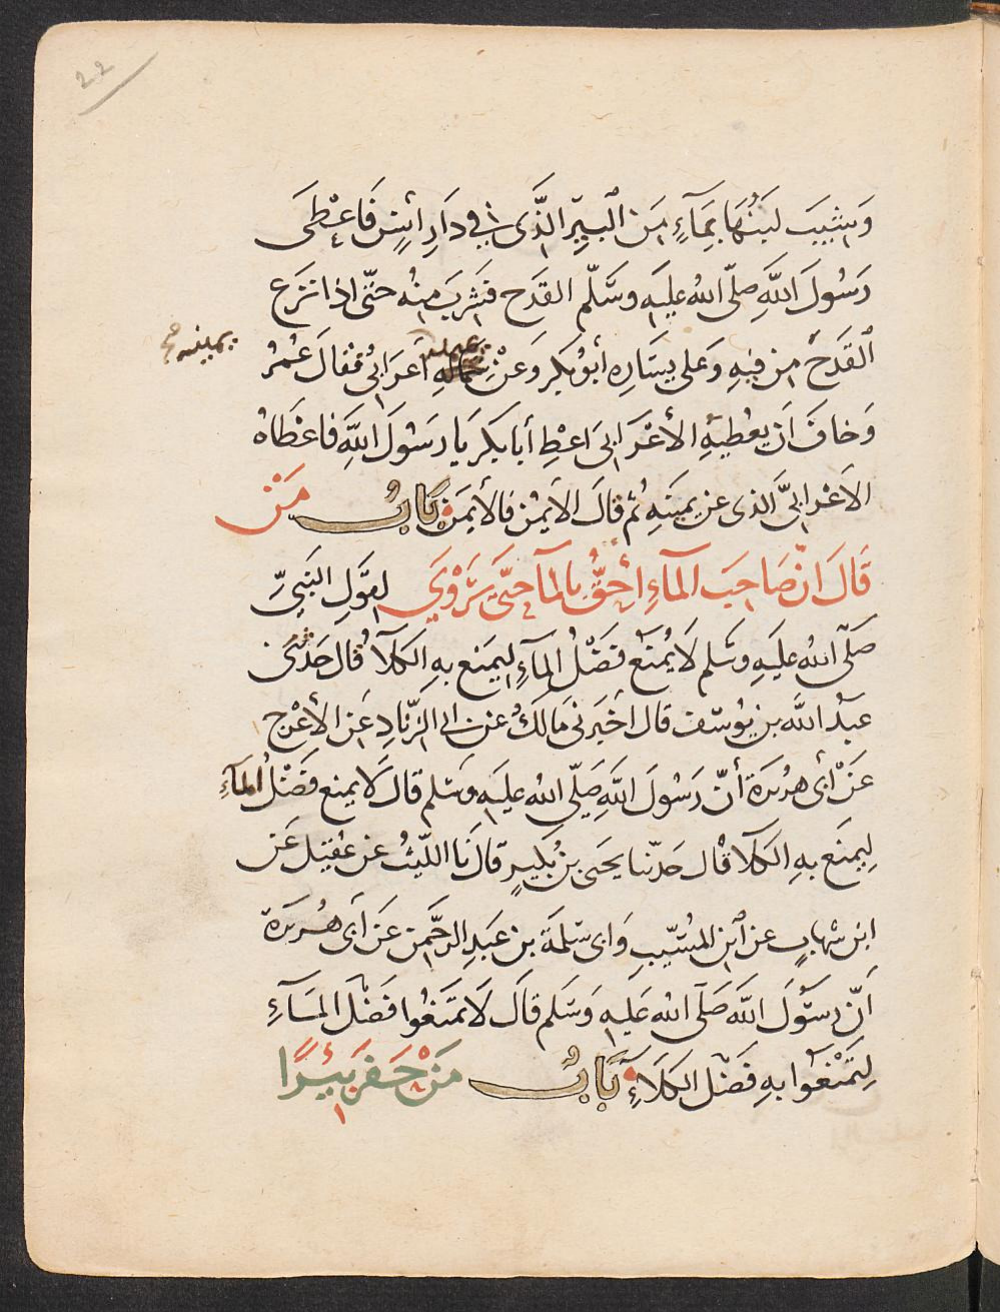 22
وَشِيبَ لَبَنُهَا بِمَآءٍ مِنَ البِيرِ الَّذَى فى دَارِ أنسٍ فَاعْطِىَ
رَسُولَ اللَّهِ صلّى الله عليه وسَلّم القدَح فشربَ منه حتّى اذا نزع
القَدَحَ من فيهِ وَعلى يسَاره أبوُ بكر وَعَنْ يمينه أعرَابىٌّ فقالَ عُمَرُ
يمينه صح
وَخافَ اَن يعْطيَهِ الأعْرَابى اَعْطِ أبا بَكر يَا رسَولَ اللَّهِ فاعْطَاهُ
الاَعْرابىَّ الذى عن يمينَهِ ثم قالَ الاَيمنُ فالأيمَنَ بَابُ مَنْ
قَالَ انّ صَاحِبَ المآءِ أحَقُّ بالمآ حتّى يَرْوِيَ لقوَلِ النبىِّ
صَلّى الله عليَهِ وسَلم لَا يُمنَع فَضْلُ المآءِ ليمَنع به الكلَآ قال حَدثنى
عبدُ اللَّه بن يوُسَف قال أخبَرنى مَالكٌ عن ابى الزّنادِ عَن الأعْرج
عَنْ أبى هريَرة أنّ رَسُولَ اللَّهِ صَلّى الله عليه وسَلم قالَ لَا يمنع فَضْلُ المآءِ
لِيمنَع بهِ الكلَآ قال حَدثنا يحيَى بن بُكيرٍ قالَ نَا اللّيثُ عن عقيل عَن
ابن شهابٍ عن ابن المسَيّب وَابى سَلمَةَ بن عَبدِ الرحمن عَن أبى هُريَرة
اَنّ رسَوُلَ اللَّه صَلّى الله عَليهِ وَسَلم قالَ لَا تمَنعُوا فَضْل المَآءِ
لِتَمْنَعوا بهِ فَضَل الكَلَاءِ بَابُ مَنْ حَفَر بَئيرًا